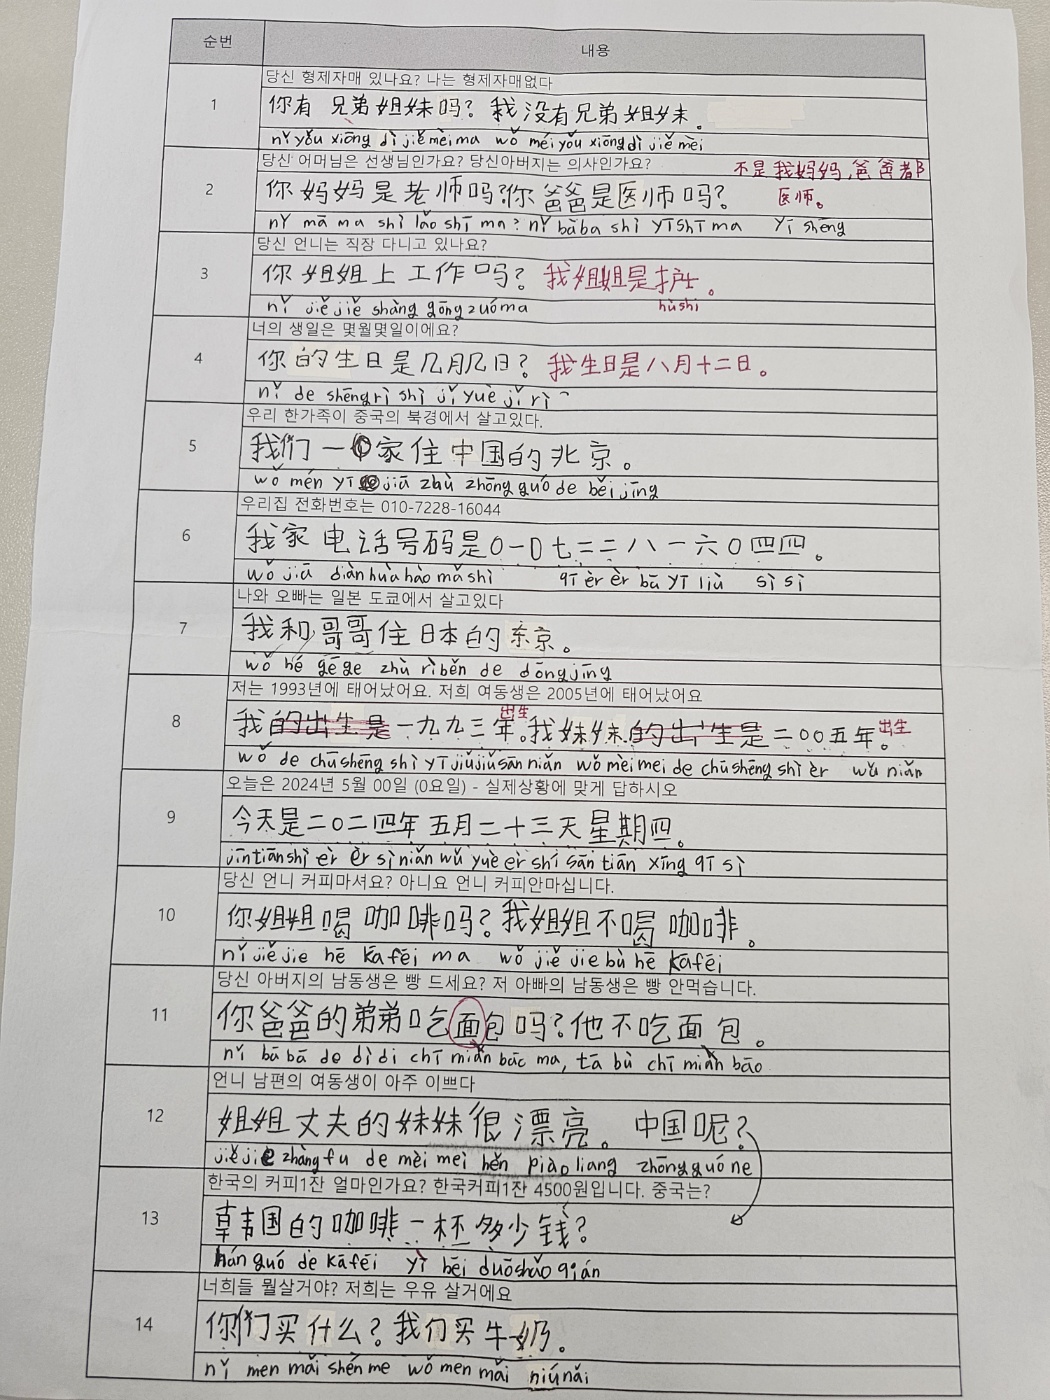 순번 내용
1
당신 형제자매 있나요? 나는 형제자매없다
你有 兄弟姐妹吗? 我没有兄弟姐妹.
nǐ yǒu xiōng dì jiě mèi ma wǒ méi yǒu xiōng dì jiě mèi
2
당신 어머님은 선생님인가요? 당신아버지는 의사인가요?
不是我妈妈,爸爸都
你妈妈是老师吗?你爸爸是医师吗?
医师。
nǐ mā ma shì lǎo shī ma? nǐ bàba shì yīshī ma yī shēng
3
당신 언니는 직장 다니고 있나요?
你姐姐上工作吗? 我姐姐是护士。
nǐ jiějiě shàng gōng zuó ma hùshi
4
너의 생일은 몇월몇일이에요?
你的生日是几月几日? 我生日是八月十二日。
nǐ de shēng rì shì jǐ yuè jǐ rì
5
우리 한가족이 중국의 북경에서 살고있다.
我们一家住中国的北京。
wǒ mén yī jiā zhù zhōng guó de běi jīng
6
우리집 전화번호는 010-7228-16044
我家电话号码是0一0七二二八一六0四四。
wǒ jiā diàn huà hào mǎ shì qī èr èr bā yī liù sì sì
7
나와 오빠는 일본 도쿄에서 살고있다
我和哥哥住日本的东京。
wǒ hé gēge zhù rìběn de dōngjīng
8
저는 1993년에 태어났어요. 저희 여동생은 2005년에 태어났어요
我的出生是一九九三年出生。我妹妹的出生是二00五年出生。
wǒ de chūshēng shì yī jiǔ jiǔ sān niǎn wǒ mèi mei de chūshēng shì èr wǔ niǎn
9
오늘은 2024년 5월 00일 (0요일) - 실제상황에 맞게 답하시오
今天是二0二四年五月二十三天星期四。
jīn tiān shì èr èr sì niǎn wǔ yuè èr shí sān tiān xīng qī sì
10
당신 언니 커피마셔요? 아니요 언니 커피안마십니다.
你姐姐喝咖啡吗? 我姐姐不喝咖啡.
nǐ jiě jie hē kāfēi ma wǒ jiě jie bù hē kāfēi
11
당신 아버지의 남동생은 빵 드세요? 저 아빠의 남동생은 빵 안먹습니다.
你爸爸的弟弟吃面包吗? 他不吃面包。
nǐ bā bā de dì di chī miǎn bāc ma, tā bù chī miǎn bāo
12
언니 남편의 여동생이 아주 이쁘다
姐姐丈夫的妹妹很漂亮。 中国呢?
jiě jiě zhàng fu de mèi mei hěn piào liang zhōng guó ne
13
한국의 커피1잔 얼마인가요? 한국커피1잔 4500원입니다. 중국는?
韩国的咖啡一杯多少钱?
hán guó de kāfēi yì bēi duōshǎo qián
14
너희들 뭘살거야? 저희는 우유 살거에요
你们买什么? 我们买牛奶.
nǐ men mǎi shén me wǒ men mǎi niúnǎi